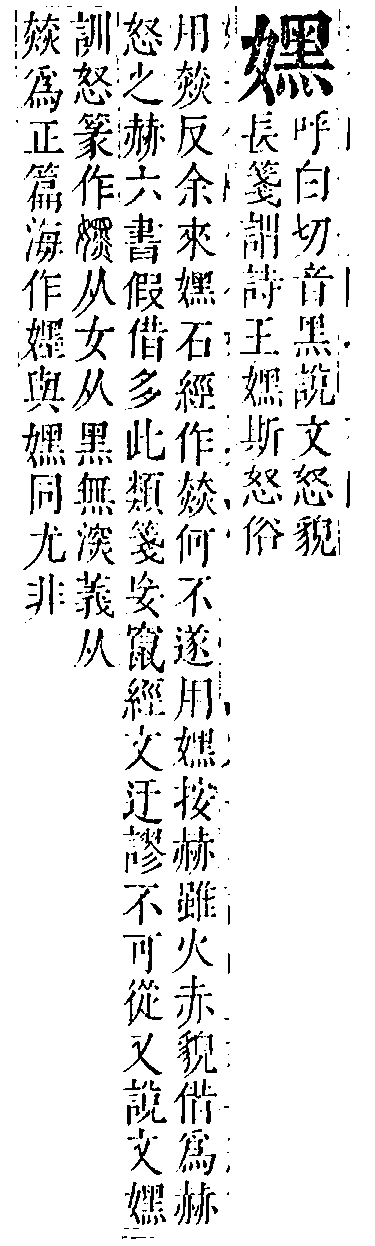 嫼
呼白切音黑說文怒貌
長箋謂詩王嫼斯怒俗
用反余來嫼石經作何不遂用嫼按赫雖火赤貌借爲赫
怒之赫六書假借多此類箋妄竄經文迂謬不可從又說文嫼
訓怒篆作从女从黑無深義从
爲正篇海作與嫼同尤非